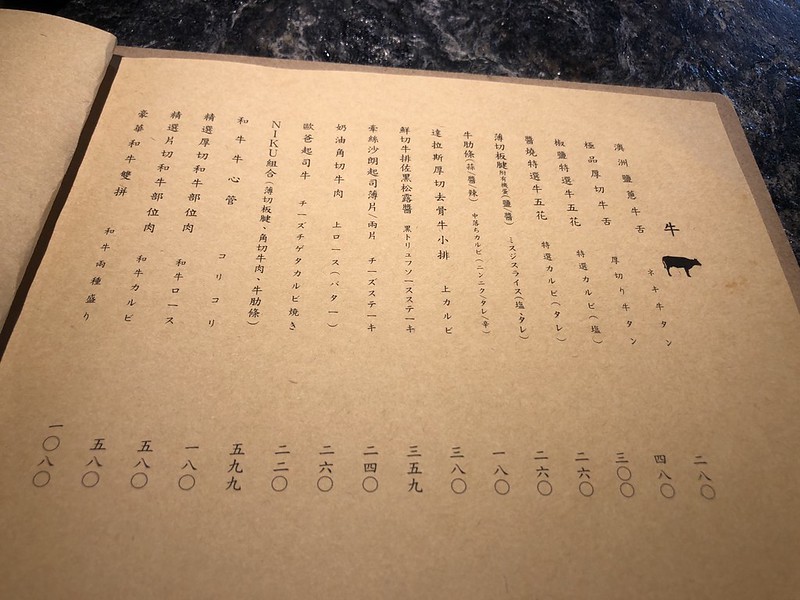 牛
澳洲鹽蔥牛舌 ネギ牛タン 二八〇
極品厚切牛舌 厚切り牛タン 四八〇
椒鹽特選牛五花 特選カルビ(塩) 三〇〇
醬燒特選牛五花 特選カルビ(タレ) 二六〇
薄切板腱附有機蛋(鹽/醬) ミスジスライス(塩、タレ) 二六〇
牛肋條(蒜/醬/辣) 中落ちカルビ(ニンニク/タレ/辛) 一八〇
達拉斯厚切去骨牛小排 上カルビ 三八〇
鮮切牛排佐黑松露醬 黒トリュフソースステーキ 三五九
牽絲沙朗起司薄片/兩片 チーズステーキ 二四〇
奶油角切牛肉 上ロース(バター) 二六〇
歐爸起司牛 チーズチゲタカルビ焼き 二二〇
NIKU組合(薄切板腱、角切牛肉、牛肋條) 五九九
和牛牛心管 コリコリ 一八〇
精選厚切和牛部位肉 和牛ロース 五八〇
精選片切和牛部位肉 和牛カルビ 五八〇
豪華和牛雙拼 和牛両種盛り 一〇八〇